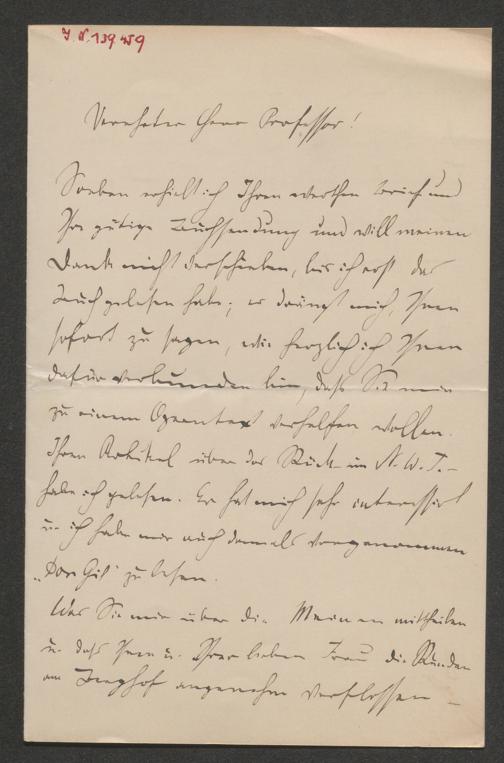 I. N. 139459
Verehrter Herr Professor!
Soeben erhielt ich Ihren werthen Brief und
Ihre gütige Buchsendung und will meinen
Dank nicht verschieben, bis ich erst das
Buch gelesen habe; es drängt mich, Ihnen
sofort zu sagen, wie herzlich ich Ihnen
dafür verbunden bin, daß Sie mir
zu einem Operntext verhelfen wollen.
Ihren Artikel über das Stück im N. W. T.
habe ich gelesen. Er hat mich sehr interessirt
u. ich habe mir auch damals vorgenommen
„Don Gil" zu lesen.
Was Sie mir über die Meinen mittheilen
u. daß Ihnen u. Ihrer lieben Frau die Stunden
am Berghof angenehm verflossen –